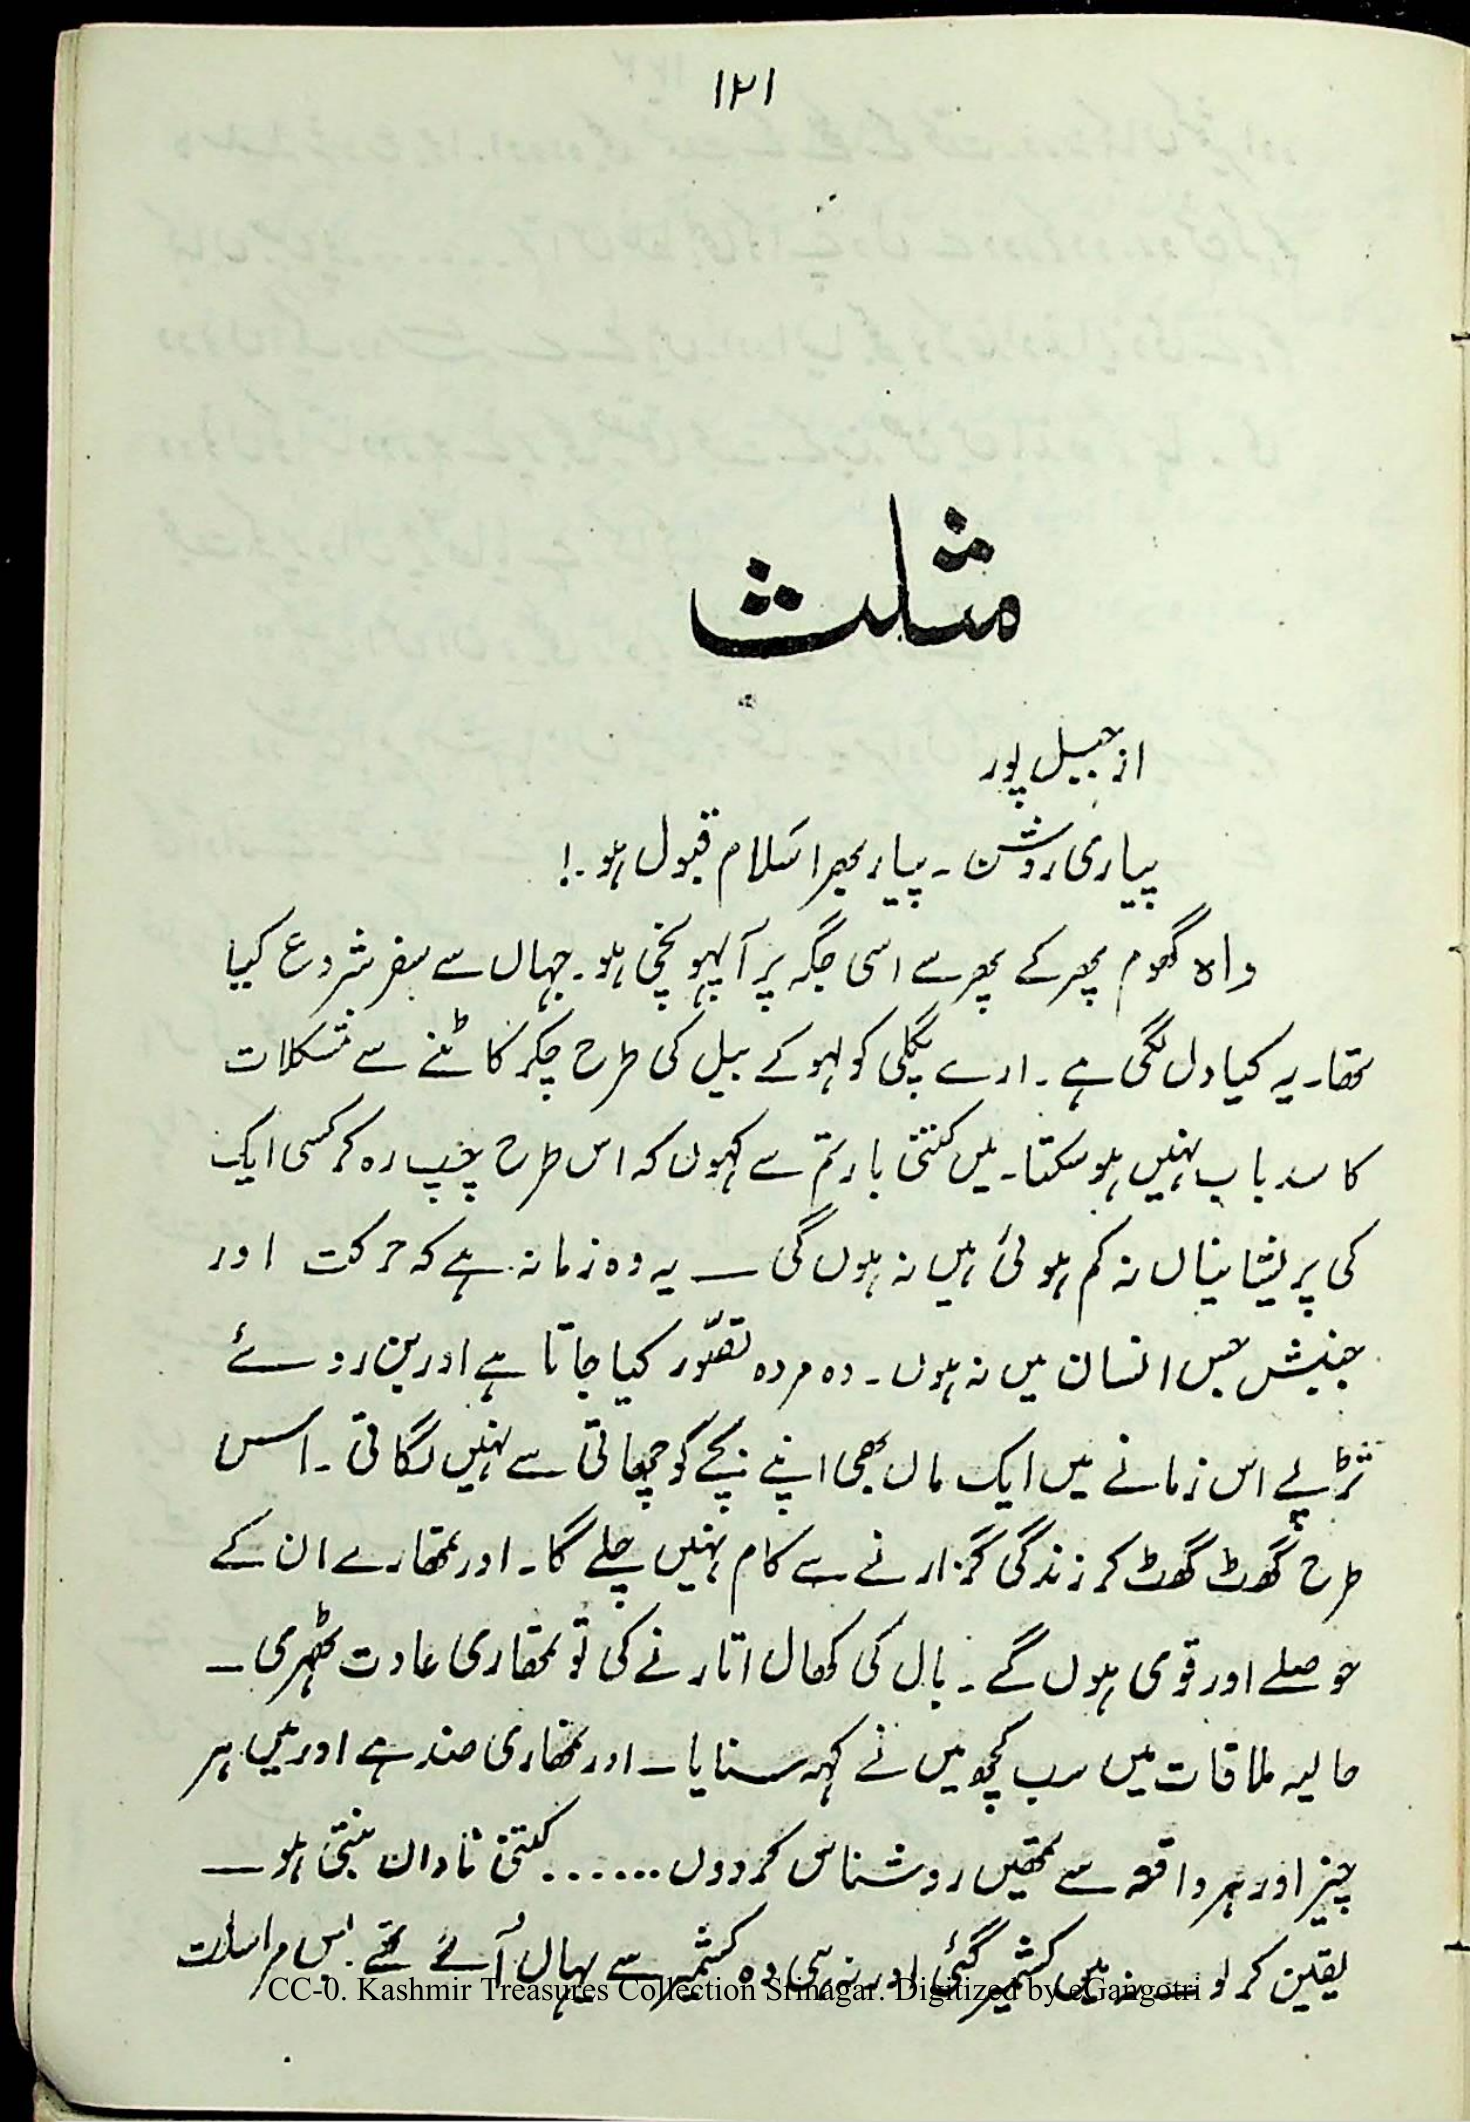 ۱۲۱
مثلث
از جبیل پور
پیاری روشن ۔ پیار بھرا سَلام قبول ہو۔!
واہ گھوم پھر کے پھر سے اسی جگہ پر آ پہو نچی ہو۔ جہاں سے سفر شروع کیا
تھا۔ یہ کیا دل لگی ہے ۔ ارے پگلی کولہو کے بیل کی طرح چکر کاٹنے سے مشکلات
کا سد باب نہیں ہو سکتا۔ میں کتنی بار تم سے کہوں کہ اس طرح چپ رہ کر کسی ایک
کی پریشانیاں نہ کم ہوئی ہیں نہ ہوں گی ــ یہ وہ زمانہ ہے کہ حرکت اور
جنبش جس انسان میں نہ ہوں ۔ وہ مردہ تصّور کیا جاتا ہے اور بن روئے
تڑپے اس زمانے میں ایک ماں بھی اپنے بچے کو چھاتی سے نہیں لگاتی ۔ اس
طرح گھوٹ گھوٹ کر زندگی گزارنے سے کام نہیں چلے گا۔ اور تمھارے ان کے
حوصلے اور قوی ہوں گے ۔ بال کی کھال اتارنے کی تو تمھاری عادت ٹھہری ــ
حالیہ ملاقات میں سب کچھ میں نے کہہ سنایا ــ اور تمھاری ضد ہے اور میں ہر
چیز اور ہر واقعہ سے تمھیں روشناس کردوں ...... کتنی نادان بنتی ہو ــ
یقین کر لو ــ نہ میں کشمیر گئی اور نہ ہی وہ کشمیر سے یہاں آئے تھے بس مراسلت
CC-0. Kashmir Treasures Collection Srinagar. Digitized by eGangotri